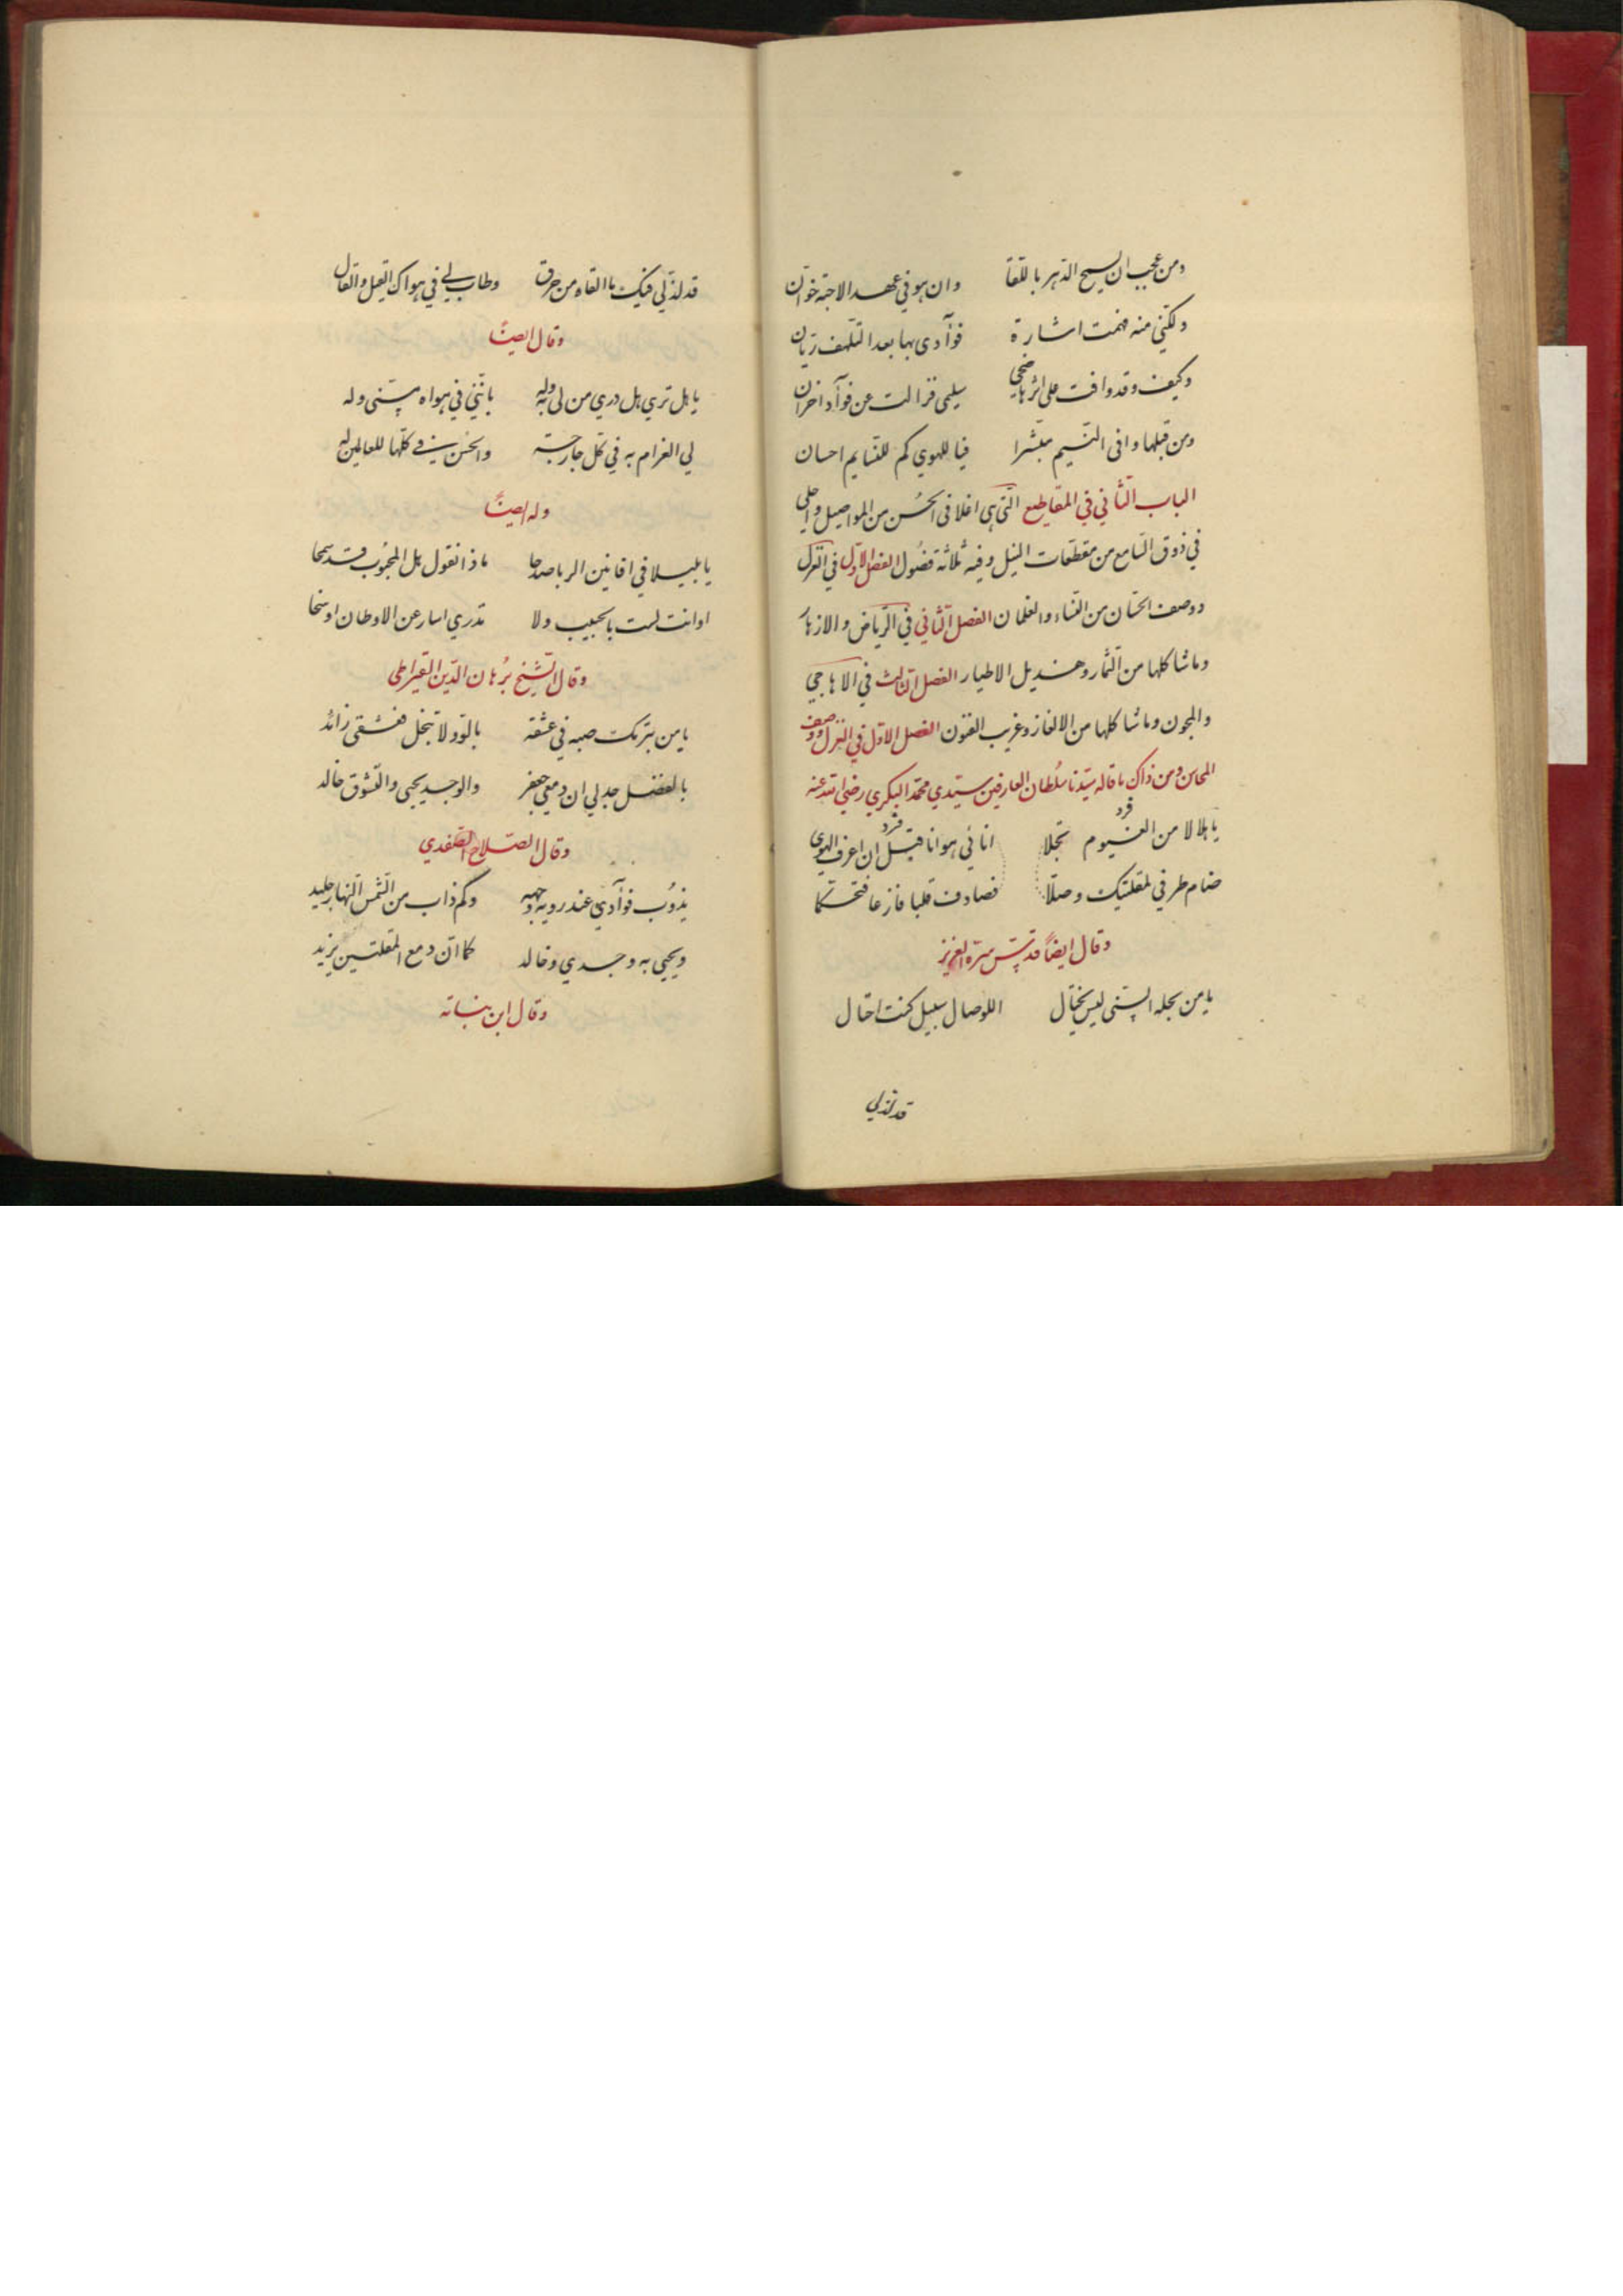 ومن عجب ان يسمح الدهر باللقا وان هو في عهد الاحبة خوان
ولكنني منه فهمت اشارة فوآدى بها بعد التلهف ريان
وكيف وقد وافت على اثرها ضحى سليمى فزالت عن فوآد احزان
ومن قبلها وافى النسيم مبشرا فيا للهوي كم للنسايم احسان
الباب الثاني في المقاطيع التى هى اغلا فى الحسن من المواصيل واحلى
في ذوق السامع من مقطعات النيل وفيه ثلاثة فصول الفصل الاول في الغزل
ووصف الحسان من النساء والغلمان الفصل الثاني في الرياض والازهار
وما شاكلها من الثمار وهنديل الاطيار الفصل الثالث في الاهاجي
والمجون وما شاكلها من الالغاز وغريب الفنون الفصل الاول في الغزل ووصف
المحاسن ومن ذاك ما قاله سيدنا سلطان العارفين سيدي محمد البكري رضي الله عنه
يا هلالا من الغيوم تجلا انا في هوانا قبل ان اعرف الهوى
فرد فرد
ضام طرفي لمقلتيك وصلا فصادف قلبا فازعا فتحكما
وقال ايضاً قدس سره العزيز
يا من بجله السنى ليس يختال اللوصال سبيل كنت احتال
قد لذلي
قد لذ لي فيك ما القاه من حرق وطاب لي في هواك القيل والقال
وقال ايضاً
يا هل تري هل دري من لى به وله بانني في هواه مسني وله
لي الغرام به في كل جارحة والحسن في كلها للعالمين له
وله ايضاً
يا بلبلا في افانين الربا صدحا ماذا تقول بل المحبوب قد سمحا
او انت لست بالحبيب ولا تدري اسار عن الاوطان او نخا
وقال الشيخ برهان الدين القيراطى
يا من تبرمك صبه في عشقه بالود لا تبخل فعشقى زائد
بالفضل جد لي ان دمعي جعفر والوجد يحيى والتشوق خالد
وقال الصلاح الصفدي
يذوب فوآدي عند روية وجهه وكم ذاب من شمس النهار جليد
ويحيى به وجدي وخالد كما ان دمع المقلتين يزيد
وقال ابن نباته